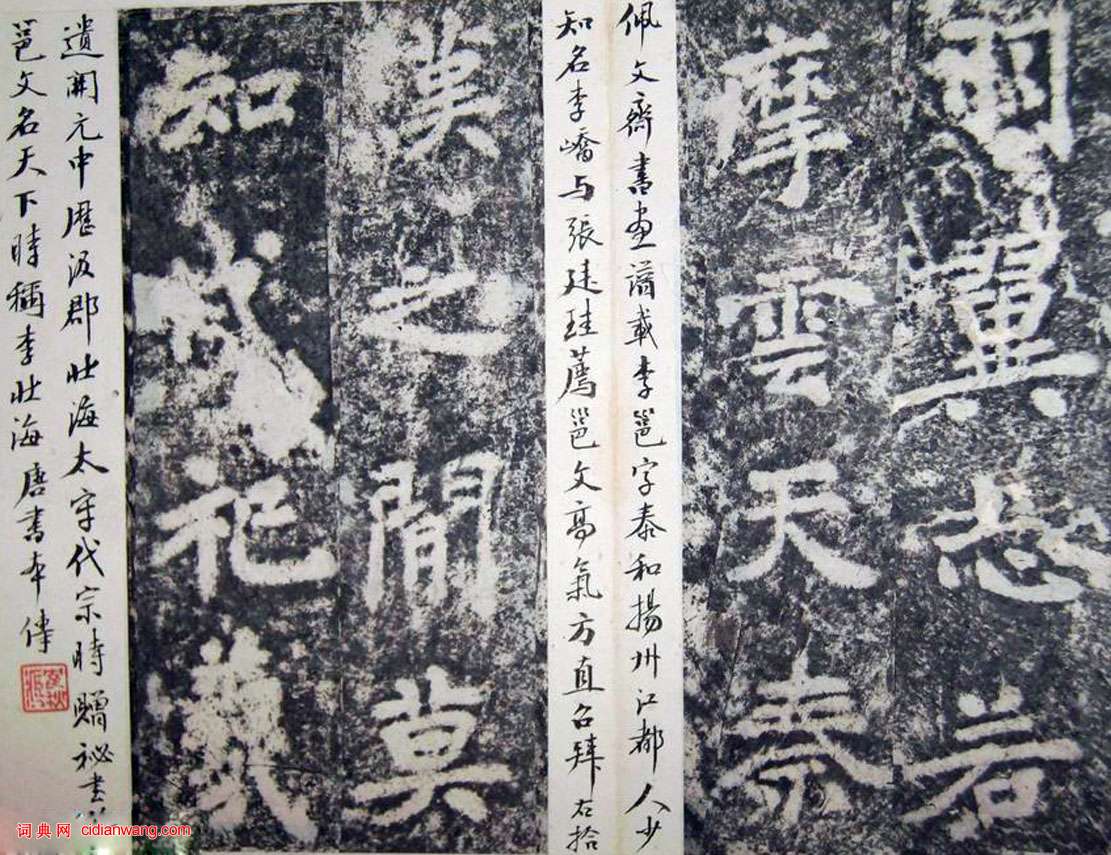 翼若
摩雲天秦
佩文齋書畫譜載李邕字泰和揚州江都人少
知名李嶠与張廷珪薦邕文高氣方直召拜左拾
漢之間莫
知祀羲
遺開元中歷汲郡北海太守代宗時贈祕書
邕文名天下時稱李北海唐書本傳
词典网 cidianwang.com